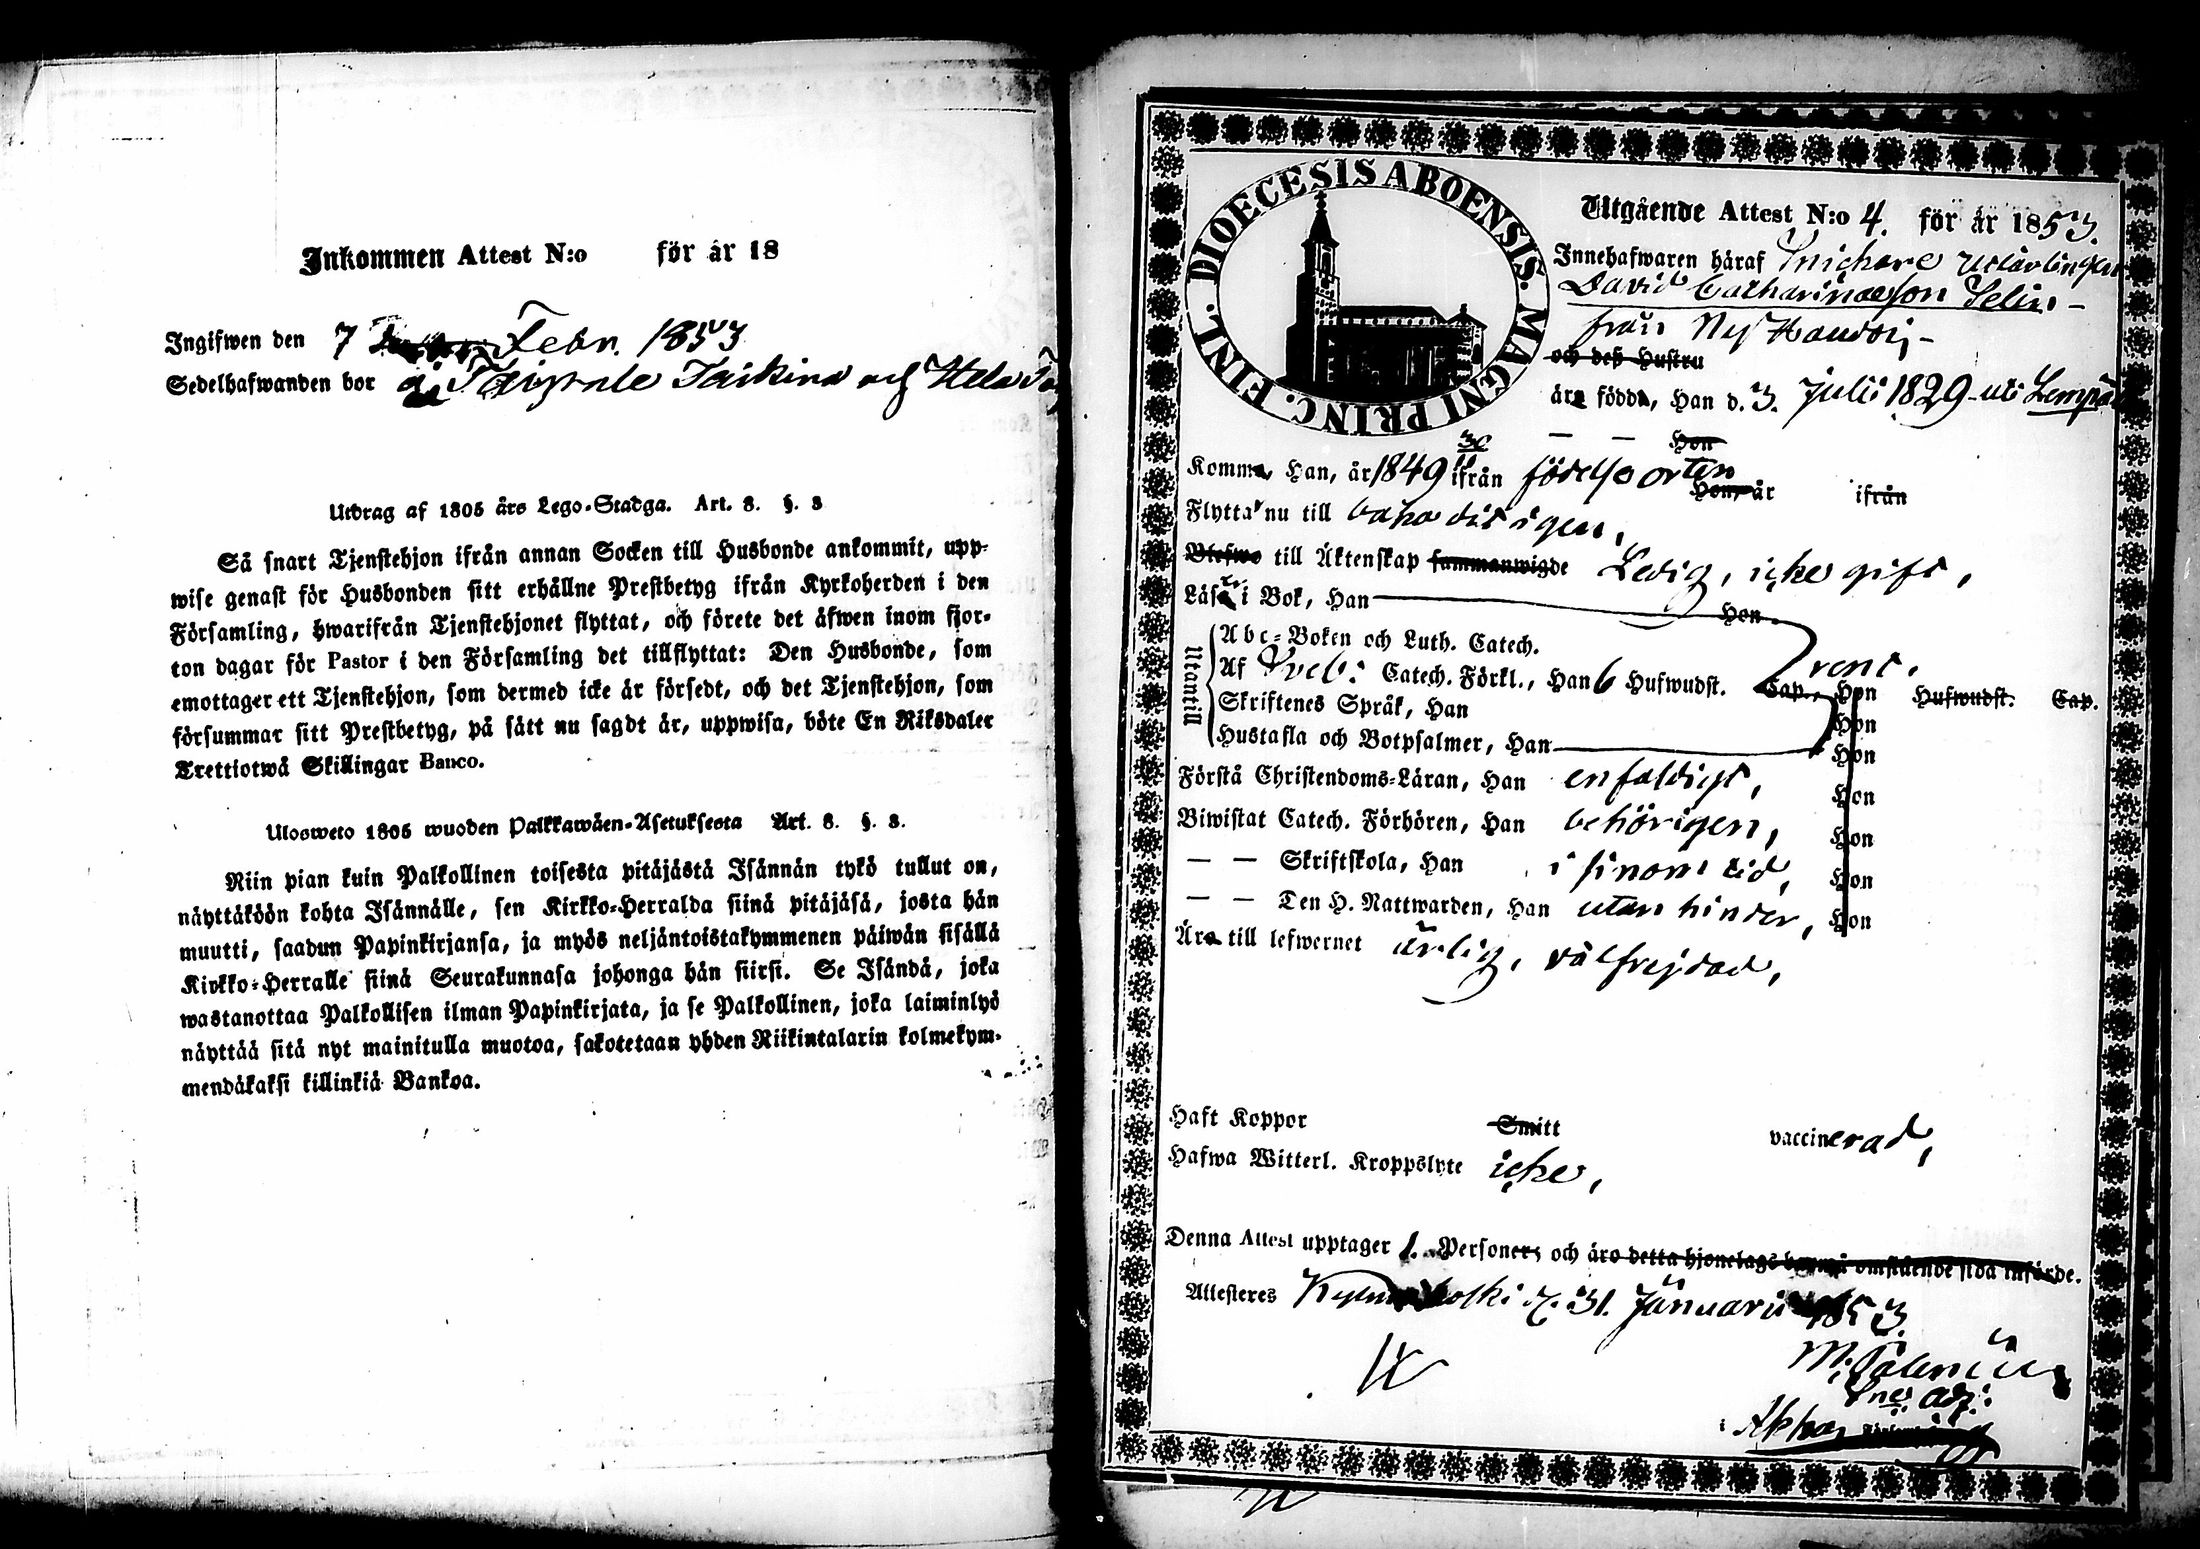 Inkommen Attest N:o för år 18
Ingifwen den 7 Febr. 1853
Sedelhafwanden bor å Taipale Taikina och Hela
Utdrag af 1805 års Lego-Stadga. Art. 8. §. 3
Så snart Tjenstehjon ifrån annan Socken till Husbonde ankommit, upp-
wise genast för Husbonden sitt erhållne Prestbetyg ifrån Kyrkoherden i den
Församling, hwarifrån Tjenstehjonet flyttat, och förete det äfwen inom fjor-
ton dagar för Pastor i den Församling det tillflyttat: Den Husbonde, som
emottager ett Tjenstehjon, som dermed icke är försedt, och det Tjenstehjon, som
försummar sitt Prestbetyg, på sätt nu sagdt är, uppwisa, böte En Riksdaler
Trettiotwå Skillingar Banco.
Ulosweto 1805 wuoden Palkkawäen-Asetuksesta Art. 8. §. 3.
Niin pian kuin Palkollinen toisesta pitäjästä Isännän tykö tullut on,
näyttäköön kohta Isännälle, sen Kirkko-Herralda siinä pitäjäsä, josta hän
muutti, saadun Papinkirjansa, ja myös neljäntoistakymmenen päiwän sisällä
Kirkko-Herralle siinä Seurakunnasa johonga hän siirsi. Se Isändä, joka
wastanottaa Palkollisen ilman Papinkirjata, ja se Palkollinen, joka laiminlyö
näyttää sitä nyt mainitulla muotoa, sakotetaan yhden Riikintalarin kolmekym-
mendäkaksi killinkiä Bankoa.
DIOECESIS ABOENSIS. MAGNI PRINC. FINL.
Utgående Attest N:o 4. för år 1853.
Innehafwaren häraf Snickare
David Catharinaeson Selin
från
och dess Hustru
äre födde, Han d. 3. Juli 1829 uti Lempä
Hon
Komme, Han, år 1849 30/11 ifrån födelseorten
Hon, år ifrån
Flytta nu till igen,
Blefwo till Äktenskap sammanwigde Ledig, icke gift,
Läsa i Bok, Han Hon
Utantill
Abc-Boken och Luth. Catech. rent.
Af Sveb: Catech. Förkl., Han 6 Hufwudst. Cap., Hon Hufwudst. Cap.
Skriftenes Språk, Han Hon
Hustafla och Botpsalmer, Han Hon
Förstå Christendoms-Läran, Han enfaldigt, Hon
Biwistat Catech. Förhören, Han behörigen, Hon
— — Skriftskola, Han i sinom tid, Hon
— — Den H. Nattwarden, Han utan hinder, Hon
Äro till lefwernet ärlig, välfrejdad,
Haft Koppor Smitt vaccinerad,
Hafwa Witterl. Kroppslyte icke,
Denna Attest upptager 1. Personer, och äro detta hjonelags barn å omstående sida införde.
Attesteres d. 31. Januarii 1853.
M.
adj:
i Akkas Församling